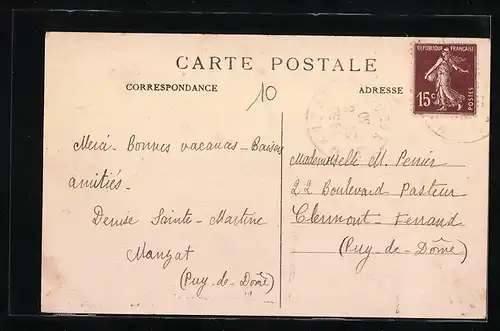 CARTE POSTALE
CORRESPONDANCE
ADRESSE
RÉPUBLIQUE FRANÇAISE
15c
POSTES
10
Merci - Bonnes vacances - Baisers
amitiés -
Denise Sainte - Martine
Manzat
(Puy-de-Dôme)
Mademoiselle M. Perrier
22 Boulevard Pasteur
Clermont Ferrand
(Puy-de-Dôme)